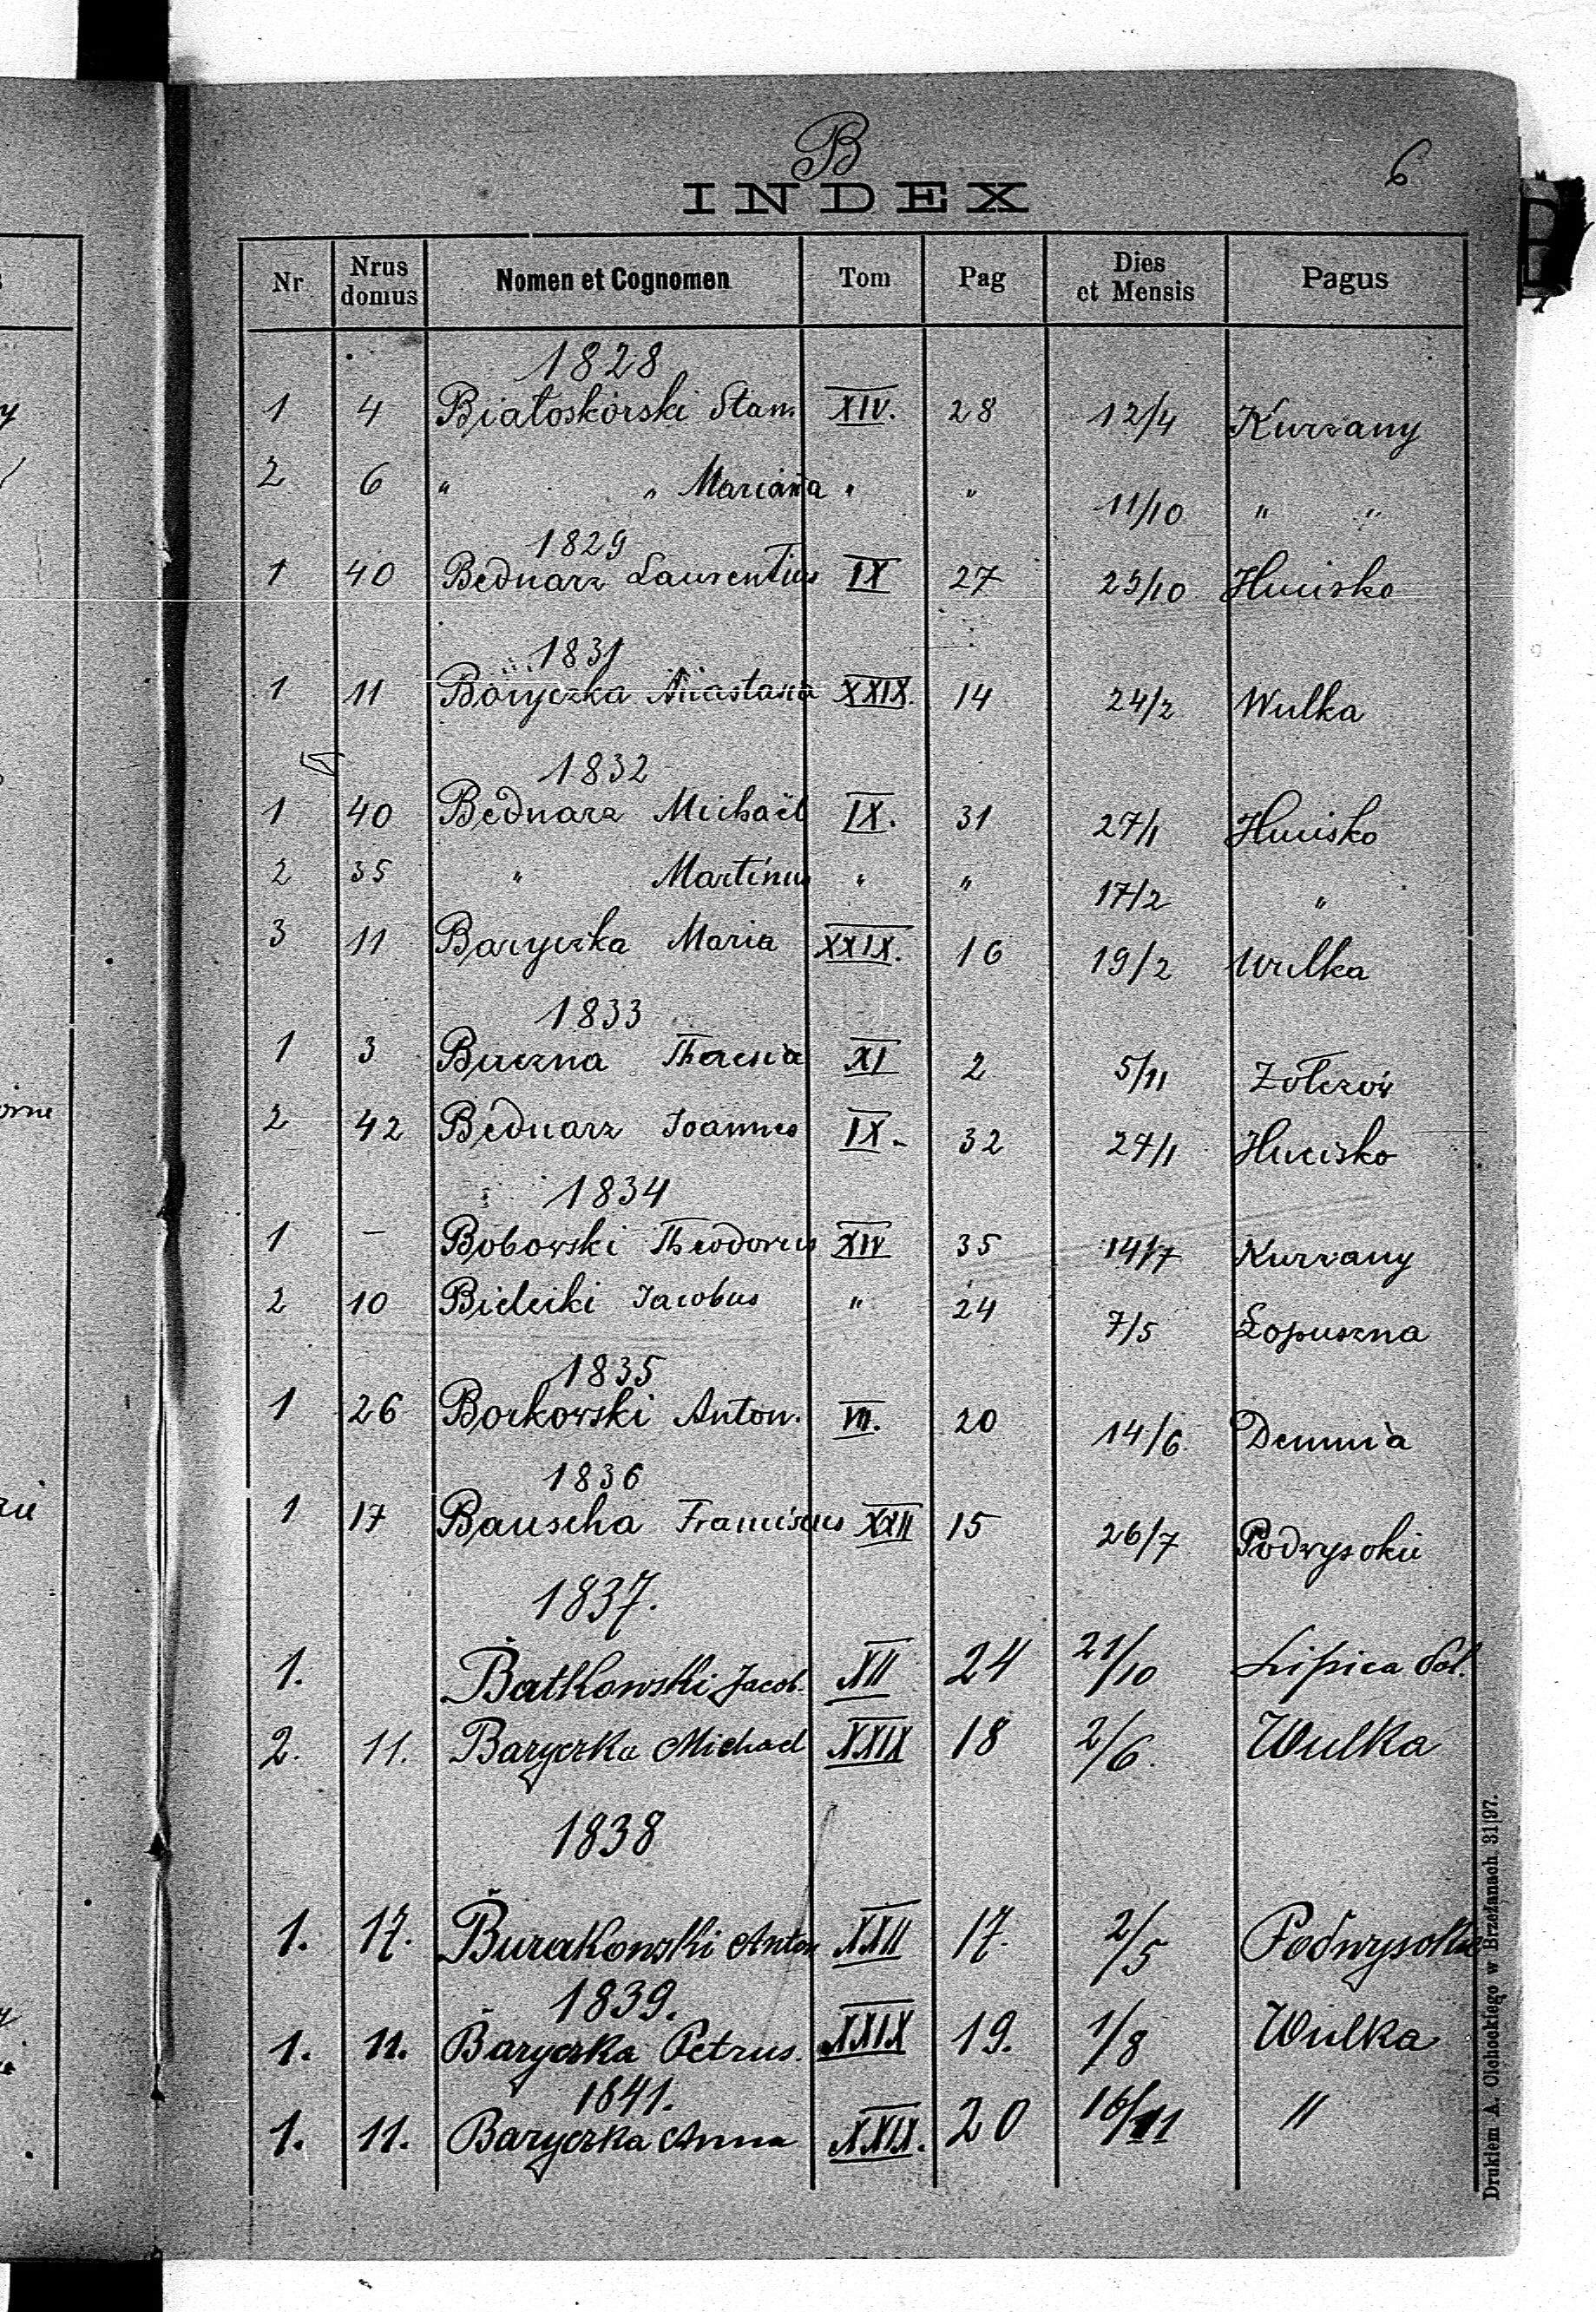 B
6
INDEX
Nr | Nrus domus | Nomen et Cognomen | Tom | Pag | Dies et Mensis | Pagus
1828
1 | 4 | Białoskórski Stan. | XIV. | 28 | 12/4 | Kurzany
2 | 6 | " " Marianna | " | " | 11/10 | " "
1829
1 | 40 | Bednarz Laurentius | IX | 27 | 25/10 | Hucisko
1831
1 | 11 | Baryczka Anastasia | XXIX. | 14 | 24/2 | Wulka
1832
1 | 40 | Bednarz Michaël | IX. | 31 | 27/1 | Hucisko
2 | 35 | " Martinus | " | " | 17/2 | "
3 | 11 | Baryczka Maria | XXIX. | 16 | 19/2 | Wulka
1833
1 | 3 | Buczna Theresia | XI | 2 | 5/11 | Żołczów
2 | 42 | Bednarz Joannes | IX. | 32 | 24/1 | Hucisko
1834
1 | – | Bobowski Theodorus | XIV | 35 | 14/7 | Kurzany
2 | 10 | Bielecki Jacobus | " | 24 | 7/5 | Łopuszna
1835
1 | 26 | Borkowski Anton. | VII. | 20 | 14/6 | Demnia
1836
1 | 17 | Bauscha Franciscus | XXII | 15 | 26/7 | Podwysokie
1837.
1. | Batkowski Jacob. | XII | 24 | 21/10 | Lipica dol.
2. | 11. | Baryczka Michael | XXIX | 18 | 2/6. | Wulka
1838
1. | 17. | Burakowski Anton | XXII | 17. | 2/5 | Podwysokie
1839.
1. | 11. | Baryczka Petrus. | XXIX | 19. | 1/8 | Wulka
1841.
1. | 11. | Baryczka Anna | XXIX. | 20 | 16/11 | "
Drukiem A. Olchockiego w Brzeżanach 31|97.